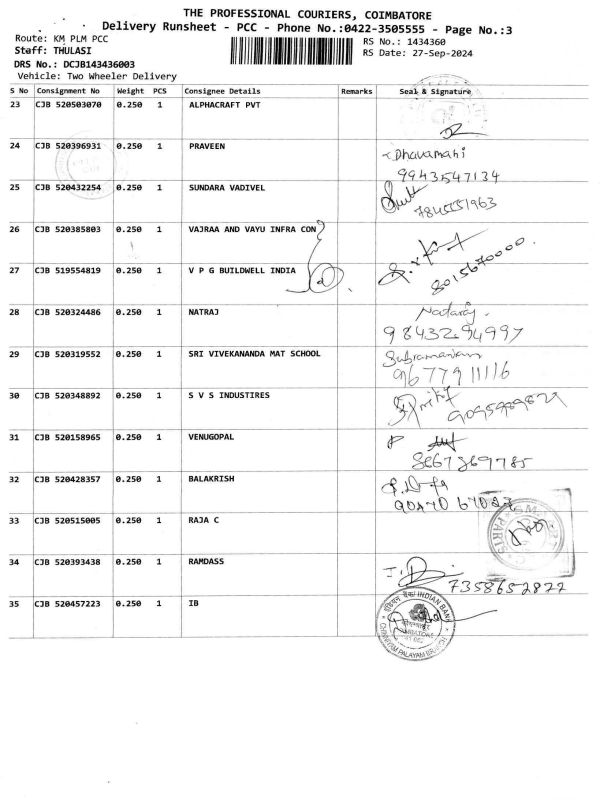 THE PROFESSIONAL COURIERS, COIMBATORE
Delivery Runsheet - PCC - Phone No.:0422-3505555 - Page No.:3
Route: KM PLM PCC
RS No.: 1434360
Staff: THULASI
RS Date: 27-Sep-2024
DRS No.: DCJB143436003
Vehicle: Two Wheeler Delivery
S No Consignment No Weight PCS Consignee Details Remarks Seal & Signature
23 CJB 520503070 0.250 1 ALPHACRAFT PVT
24 CJB 520396931 0.250 1 PRAVEEN Dhavamani
9943547134
25 CJB 520432254 0.250 1 SUNDARA VADIVEL
26 CJB 520385803 0.250 1 VAJRAA AND VAYU INFRA CON
27 CJB 519554819 0.250 1 V P G BUILDWELL INDIA 8015670000.
28 CJB 520324486 0.250 1 NATRAJ Nataraj.
9843294997
29 CJB 520319552 0.250 1 SRI VIVEKANANDA MAT SCHOOL Subramaniam
9677911116
30 CJB 520348892 0.250 1 S V S INDUSTIRES
31 CJB 520158965 0.250 1 VENUGOPAL
8667869785
32 CJB 520428357 0.250 1 BALAKRISH
33 CJB 520515005 0.250 1 RAJA C
PARTS
34 CJB 520393438 0.250 1 RAMDASS
7358652822
35 CJB 520457223 0.250 1 IB
इंडियन बैंक INDIAN BANK
CHINNIYAM PALAYAM BRANCH